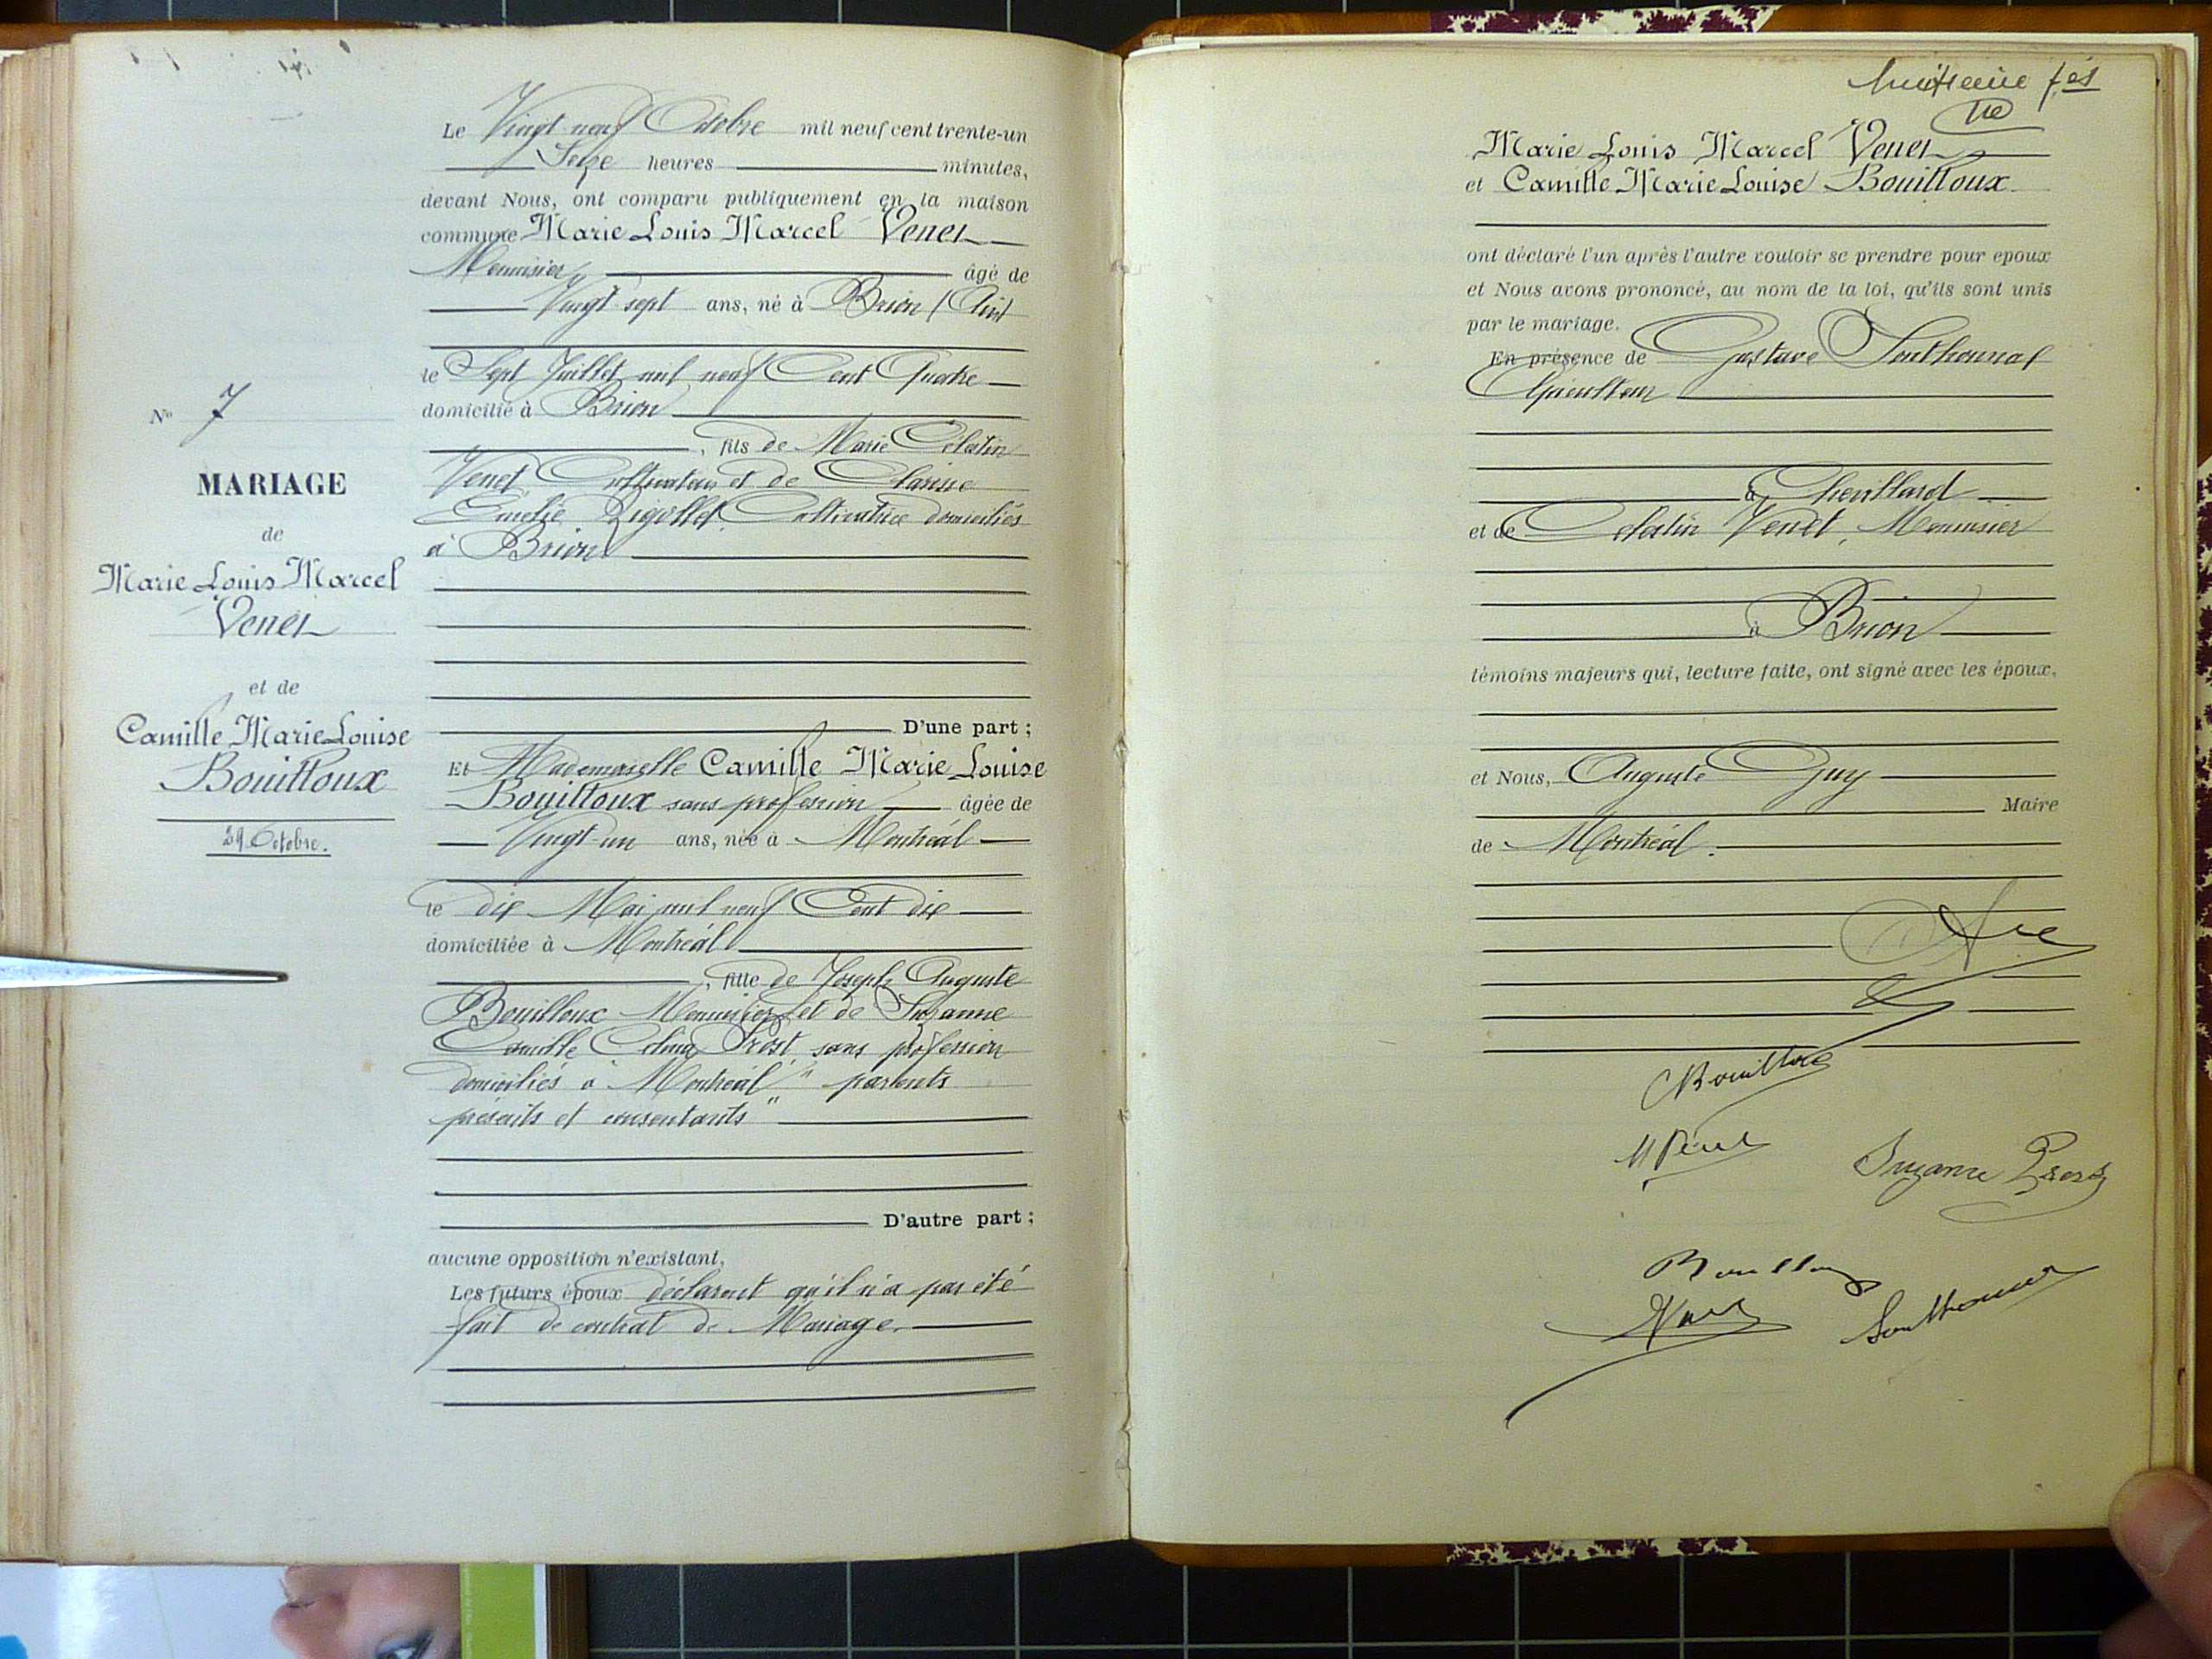 Le Vingt neuf Octobre mil neuf cent trente-un
Seize heures minutes,
devant Nous, ont comparu publiquement en la maison
commune Marie Louis Marcel Venet
Menuisier âgé de
Vingt sept ans, né à Brion (Ain)
le Sept Juillet mil neuf Cent Quatre
domicilié à Brion
, fils de Marie Célestin
Venet Cultivateur et de Clarisse
Emélie Rigollet, Cultivatrice domiciliés
à Brion
N° 7
MARIAGE
de
Marie Louis Marcel
Venet
et de
Camille Marie Louise
Bouilloux
29 Octobre.
D'une part ;
Et Mademoiselle Camille Marie Louise
Bouilloux sans profession âgée de
Vingt-un ans, née à Montréal
le dix Mai mil neuf Cent dix
domiciliée à Montréal
, fille de Joseph Auguste
Bouilloux Menuisier et de Suzanne
Camille Célina Prost, sans profession
domiciliés à Montréal " parents
présents et consentants "
D'autre part ;
aucune opposition n'existant,
Les futurs époux déclarent qu'il n'a pas été
fait de contrat de Mariage.
huitième f.et
Marie Louis Marcel Venet
et Camille Marie Louise Bouilloux
ont déclaré l'un après l'autre vouloir se prendre pour epoux
et Nous avons prononcé, au nom de la loi, qu'ils sont unis
par le mariage.
En présence de Gustave Southonnax
Apiculteur
à Chevillard
et de Célestin Venet, Menuisier
à Brion
témoins majeurs qui, lecture faite, ont signé avec les époux,
et Nous, Auguste Guy
Maire
de Montréal.
CBouilloux
M Venet
Suzanne Prost
Bouilloux
Venet
Southonnax